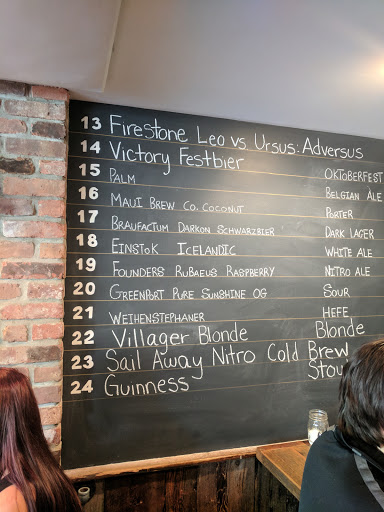 13 Firestone Leo vs Ursus: Adversus
14 Victory Festbier OKTOBERFEST
15 PALM BELGIAN ALE
16 MAUI BREW CO. COCONUT PORTER
17 BRAUFACTUM DARKON SCHWARZBIER DARK LAGER
18 EINSTOK ICELANDIC WHITE ALE
19 FOUNDERS RUBAEUS RASPBERRY NITRO ALE
20 GREENPORT PURE SUNSHINE OG SOUR
21 WEIHENSTEPHANER HEFE
22 Villager Blonde Blonde
23 Sail Away Nitro Cold Brew
24 Guinness